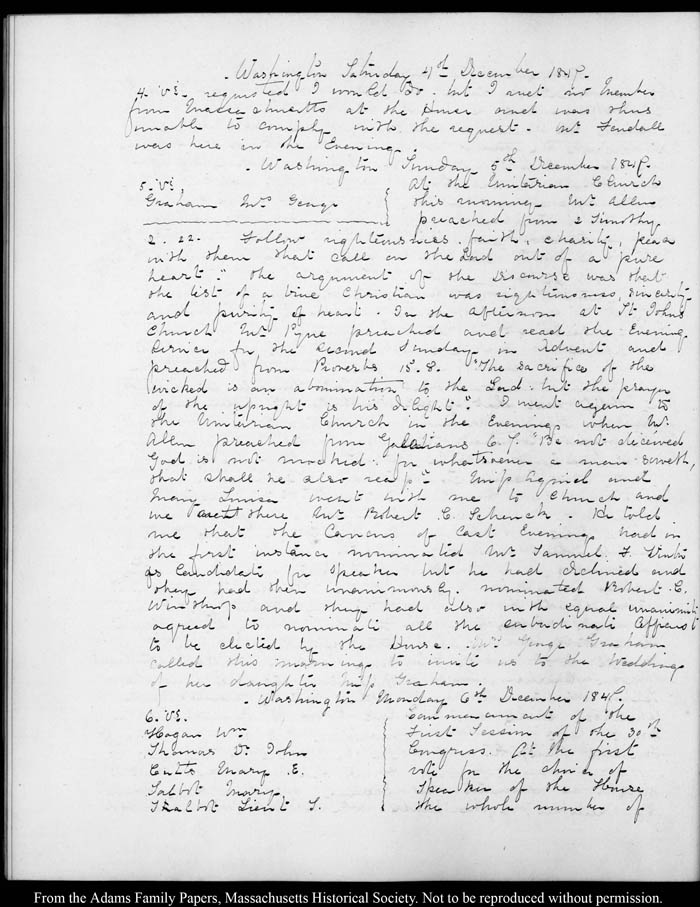 Washington Saturday 4th December 1847.
4. VI. requested I would do. but I met no Member
from Massachusetts at the House and was thus
unable to comply with the request. Mr Fendall
was here in the Evening.
Washington Sunday 5th December 1847.
5. VI.
Graham Mrs George
At the Unitarian Church
this morning Mr Allen
preached from 2 Timothy
2. 22. Follow righteousness, faith, charity, peace
with them that call on the Lord out of a pure
heart." the argument of the Discourse was that
the list of a true Christian was righteousness, sincerity
and purity of heart. In the afternoon at St Johns
Church Mr Pyne preached and read the Evening
service for the second Sunday in Advent and
preached from Proverbs 15. 8. "The sacrifice of the
wicked is an abomination to the Lord: but the prayer
of the upright is his delight". I went again to
the Unitarian Church in the Evening when Mr
Allen preached from Galatians 6. 7. "Be not deceived
God is not mocked: for whatsoever a man soweth,
that shall he also reap". Miss and
Mary Louisa went with me to Church and
we there Mr Robert C. Schenck. He told
me that the Caucus of last Evening had in
the first instance nominated Mr Samuel F. Vinton
as Candidate for Speaker but he had declined and
they had then unanimously nominated Robert C.
Winthrop and they had also with equal unanimity
agreed to nominate all the subordinate Officers
to be elected by the House. Mrs George Graham
called this morning to invite us to the Wedding
of her daughter Miss Graham.
Washington Monday 6th December 1847.
6. VI.
Hogan Wm
Thomas D. John
Cutts Mary E.
Talbot Mary
Talbot Lieut T.
Commencement of the
First Session of the 30th
Congress. At the first
vote for the choice of
Speaker of the House
the whole number of
From the Adams Family Papers, Massachusetts Historical Society. Not to be reproduced without permission.